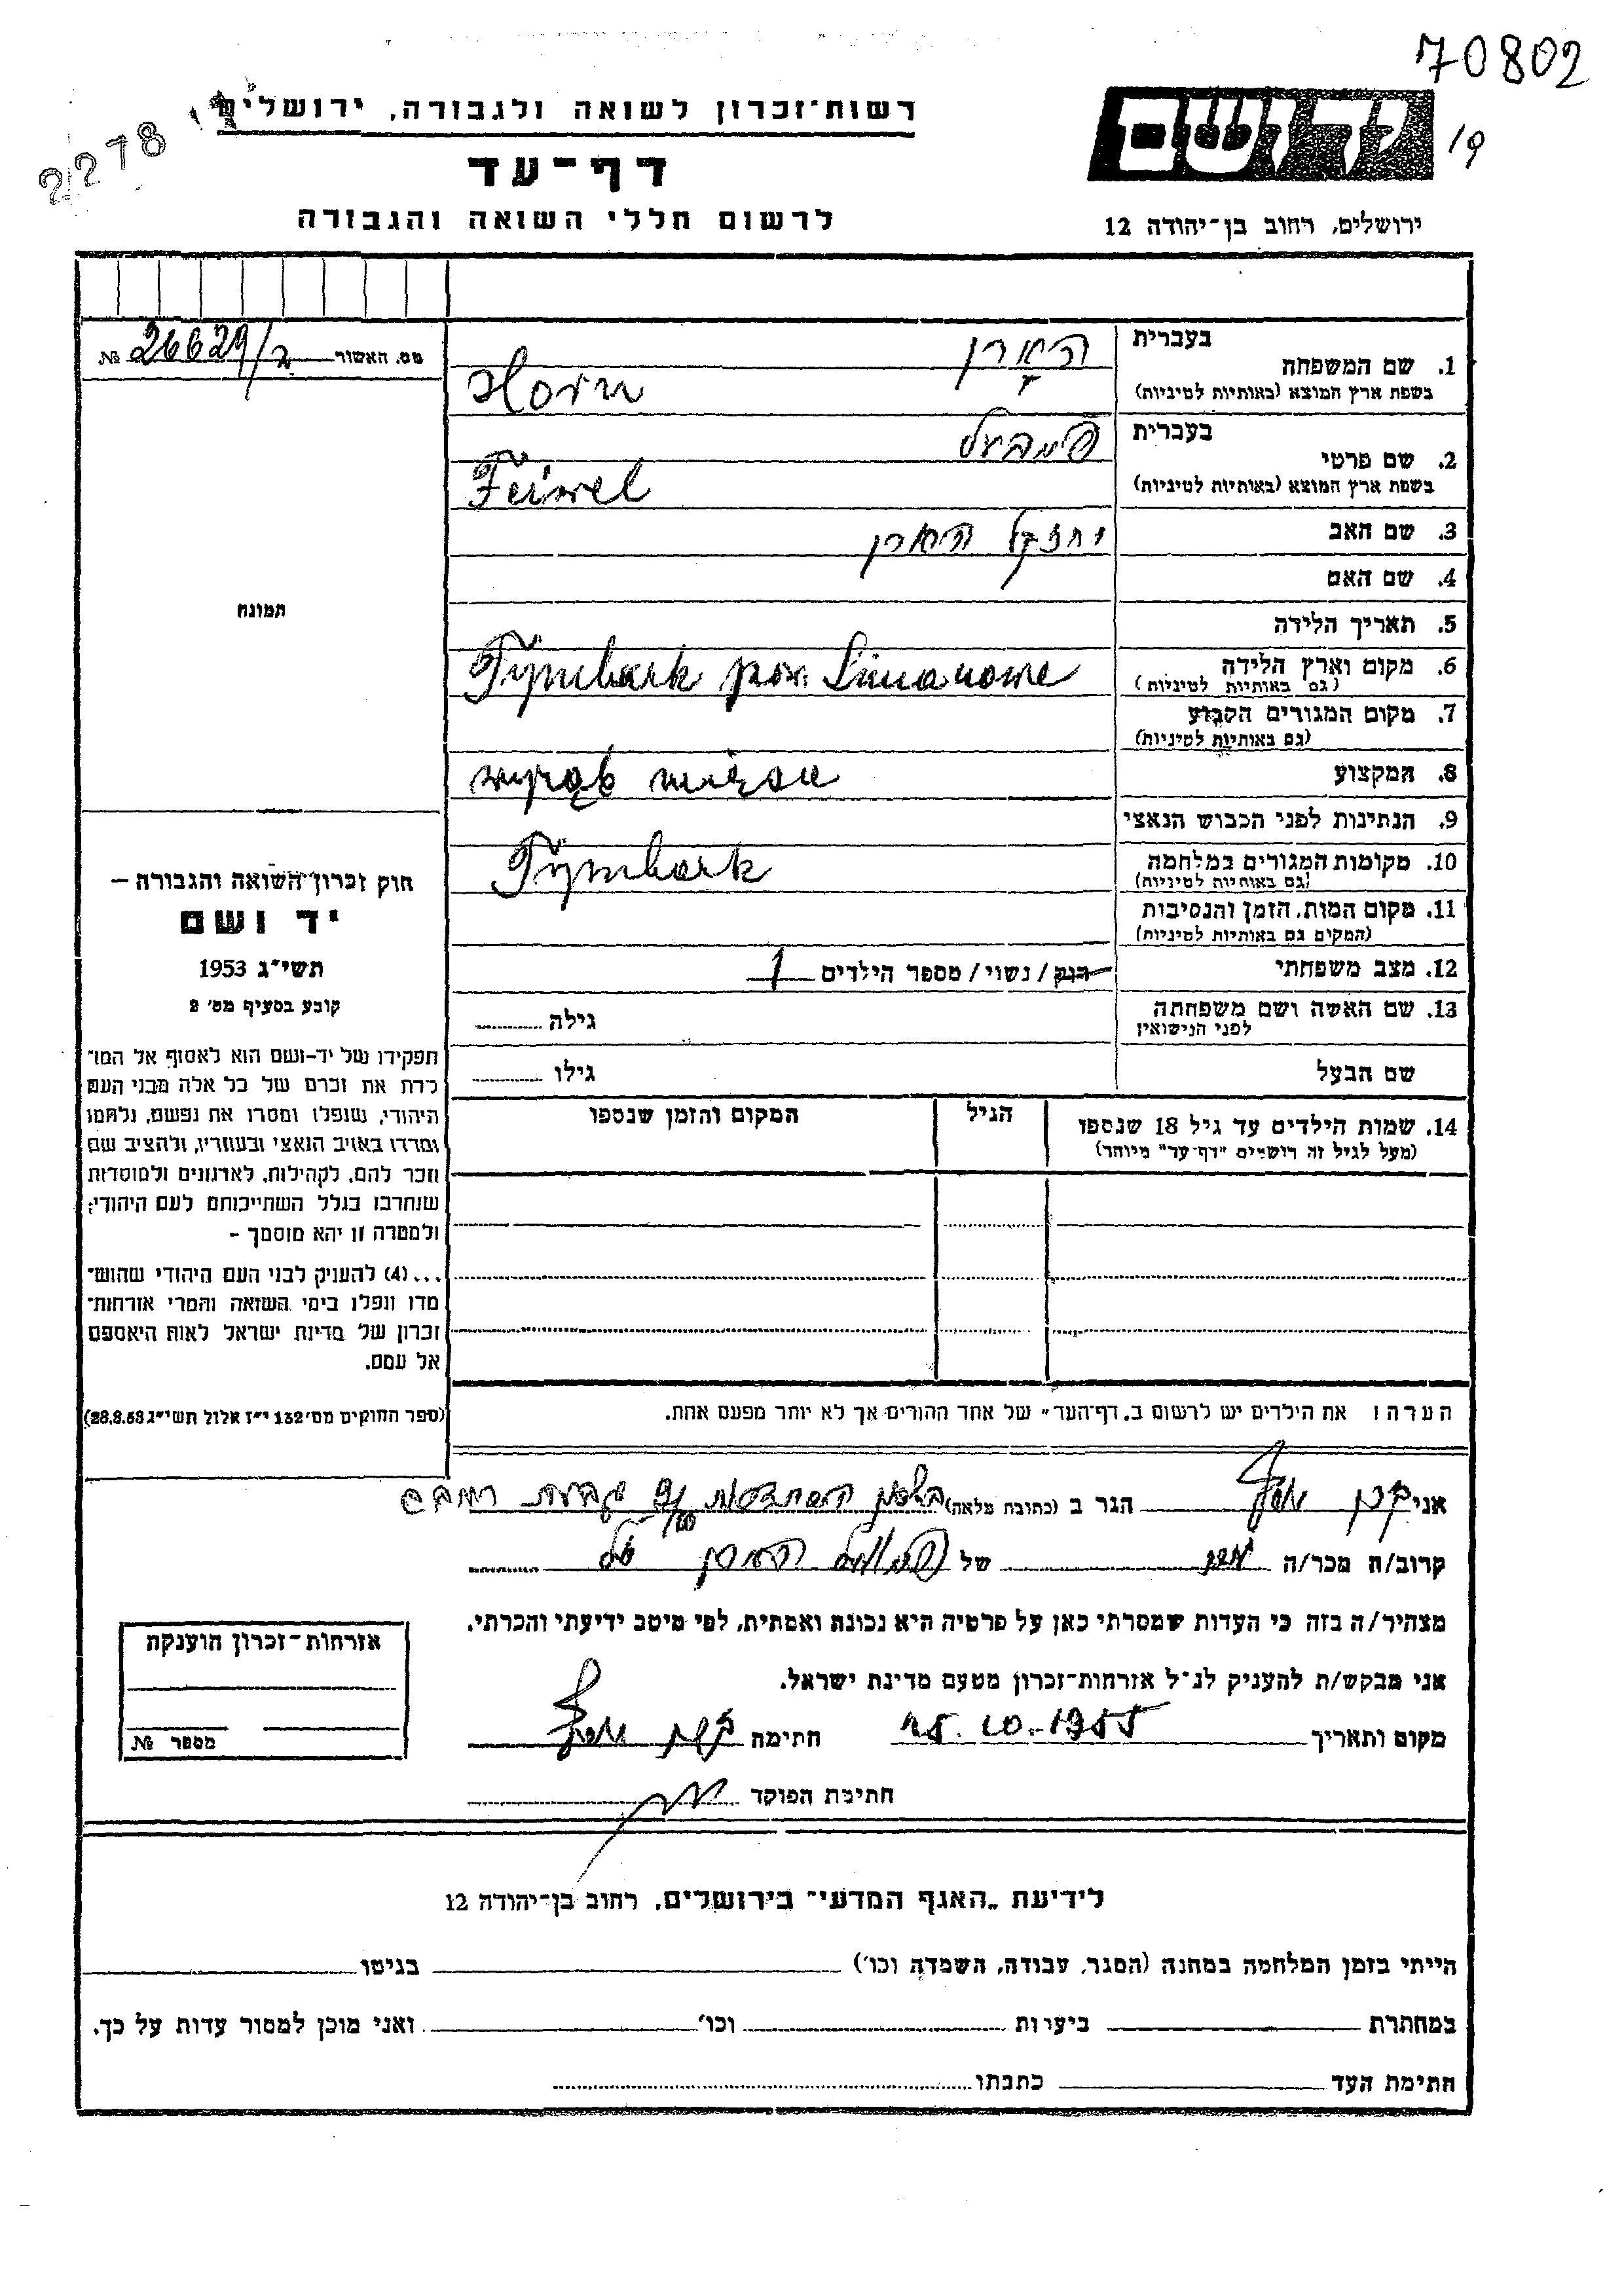 70802
2278
רשות־זכרון לשואה ולגבורה, ירושלים
דף־עד
לרשום חללי השואה והגבורה
ידושם
19
ירושלים, רחוב בן־יהודה 12
מס. האשור 26629/ב №
בעברית הארן
1. שם המשפחה
בשפת ארץ המוצא (באותיות לטיניות) Horn
בעברית
2. שם פרטי
בשפת ארץ המוצא (באותיות לטיניות) Feiwel
3. שם האב יחזקל הארן
4. שם האם
5. תאריך הלידה
6. מקום וארץ הלידה Tymbark pow. Limanowe
(גם באותיות לטיניות)
7. מקום המגורים הקבוע
(גם באותיות לטיניות)
8. המקצוע
9. הנתינות לפני הכבוש הנאצי
10. מקומות המגורים במלחמה Tymbark
(גם באותיות לטיניות)
11. מקום המות, הזמן והנסיבות
(המקום גם באותיות לטיניות)
12. מצב משפחתי רווק / נשוי / מספר הילדים 1
13. שם האשה ושם משפחתה גילה
לפני הנישואין
שם הבעל גילו
14. שמות הילדים עד גיל 18 שנספו הגיל המקום והזמן שנספו
(מעל לגיל זה רושמים "דף־עד" מיוחד)
תמונה
חוק זכרון השואה והגבורה —
יד ושם
תשי"ג 1953
קובע בסעיף מס' 2
תפקידו של יד-ושם הוא לאסוף אל המו־
לדת את זכרם של כל אלה מבני העם
היהודי, שנפלו ומסרו את נפשם, נלחמו
ומרדו באויב הנאצי ובעוזריו, ולהציב שם
וזכר להם, לקהילות, לארגונים ולמוסדות
שנחרבו בגלל השתייכותם לעם היהודי;
ולמטרה זו יהא מוסמך –
...(4) להעניק לבני העם היהודי שהוש־
מדו ונפלו בימי השואה והמרי אזרחות־
זכרון של מדינת ישראל לאות היאספם
אל עמם.
(ספר החוקים מס' 132 י"ז אלול תשי"ג 28.8.53)
הערה: את הילדים יש לרשום ב"דף־העד" של אחד ההורים אך לא יותר מפעם אחת.
אני הגר ב (כתובת מלאה)
קרוב/ה מכר/ה של
מצהיר/ה בזה כי העדות שמסרתי כאן על פרטיה היא נכונה ואמתית, לפי מיטב ידיעתי והכרתי.
אני מבקש/ת להעניק לנ"ל אזרחות־זכרון מטעם מדינת ישראל.
מקום ותאריך 25.10.1955 חתימה
חתימת הפוקד
אזרחות־זכרון הוענקה
מספר №
לידיעת "האגף המדעי" בירושלים, רחוב בן־יהודה 12
הייתי בזמן המלחמה במחנה (הסגר, עבודה, השמדה וכו') בגיטו
במחתרת ביערות וכו' ואני מוכן למסור עדות על כך.
חתימת העד כתבתו